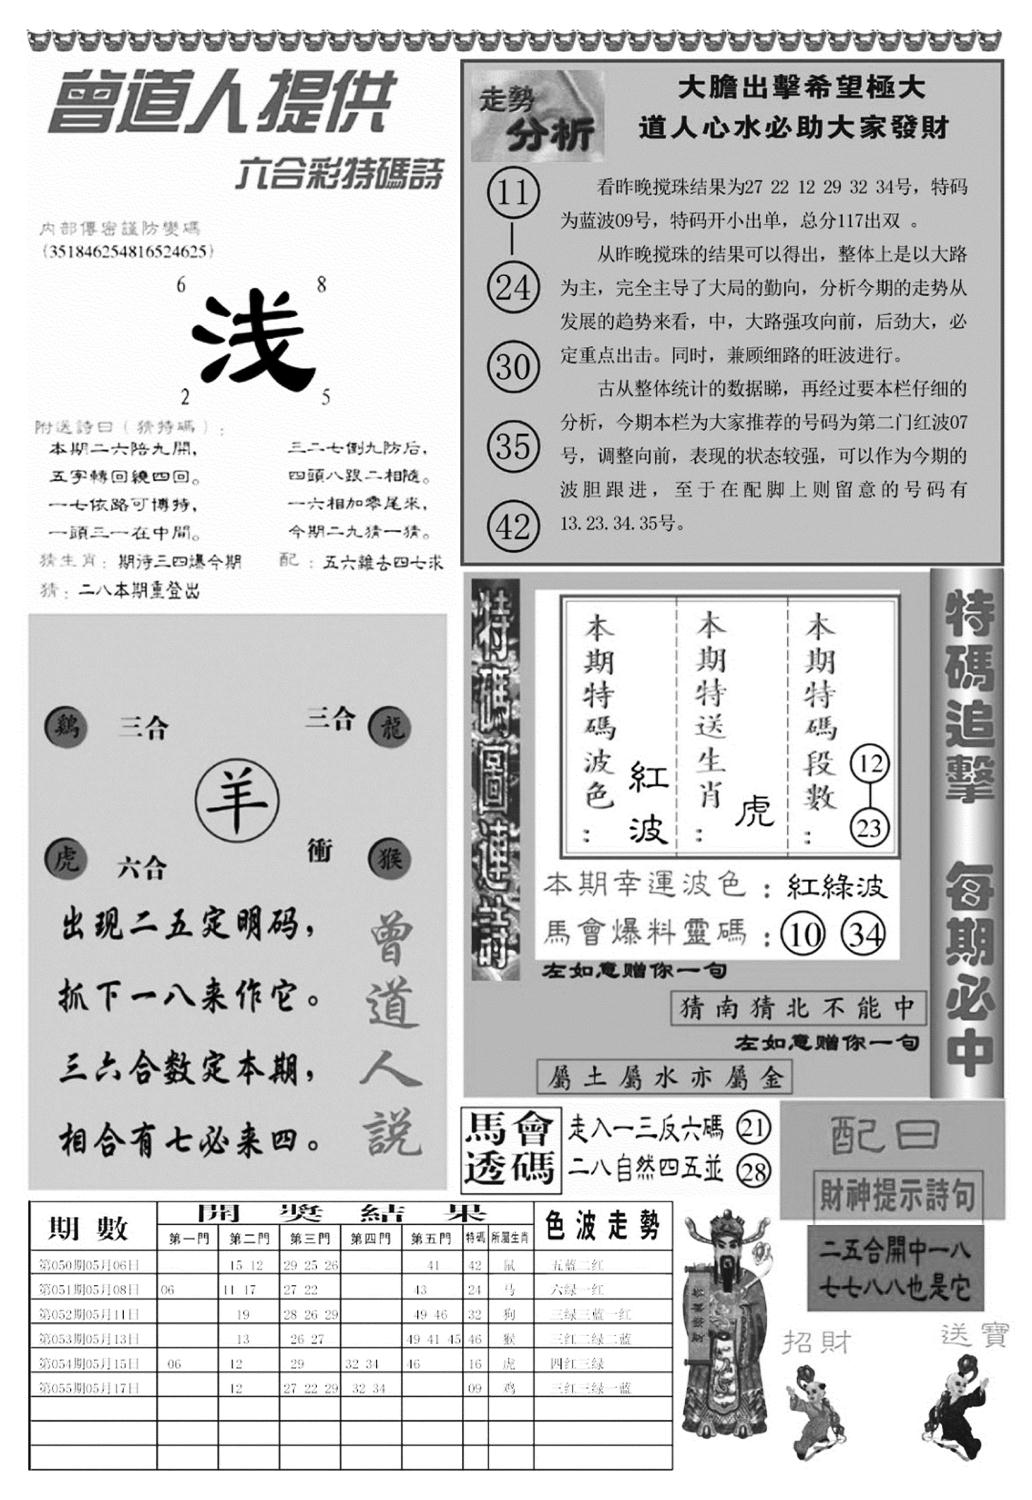 曾道人提供
六合彩特碼詩
内部傳密謹防變碼
(351846254816524625)
6 8
浅
2 5
附送詩曰（猜特碼）:
本期二六陪九開,
三二七倒九防后,
五字轉回繞四回。
四頭八跟二相隨。
一七依路可博特,
一六相加零尾来,
一頭三一在中間。
今期二九猜一猜。
猜生肖: 期待三四爆今期
配: 五六雞去四七求
猜: 二八本期重登出
走勢
分析
大膽出擊希望極大
道人心水必助大家發財
11
24
30
35
42
看昨晚搅珠结果为27 22 12 29 32 34号，特码
为蓝波09号，特码开小出单，总分117出双 。
从昨晚搅珠的结果可以得出，整体上是以大路
为主，完全主导了大局的勤向，分析今期的走势从
发展的趋势来看，中，大路强攻向前，后劲大，必
定重点出击。同时，兼顾细路的旺波进行。
古从整体统计的数据睇，再经过要本栏仔细的
分析，今期本栏为大家推荐的号码为第二门红波07
号，调整向前，表现的状态较强，可以作为今期的
波胆跟进，至于在配脚上则留意的号码有
13.23.34.35号。
鷄 三合
三合 龍
羊
虎 六合
衝 猴
出现二五定明码，
抓下一八来作它。
三六合数定本期，
相合有七必来四。
曾道人説
特碼圖連詩
本期特碼波色：
紅波
本期特送生肖：
虎
本期特碼段數：
12
23
本期幸運波色：紅綠波
馬會爆料靈碼：10 34
左如意赠你一句
猜南猜北不能中
左如意赠你一句
屬土屬水亦屬金
特碼追擊 每期必中
馬會
透碼
走入一三反六碼 21
二八自然四五並 28
配曰
財神提示詩句
二五合開中一八
七七八八也是它
招財
送寶
期數 開獎結果 色波走勢
第一門 第二門 第三門 第四門 第五門 特碼 所屬生肖
第050期05月06日 15 12 29 25 26 41 42 鼠 五蓝二红
第051期05月08日 06 11 17 27 22 43 24 马 六绿一红
第052期05月11日 19 28 26 29 49 46 32 狗 三绿三蓝一红
第053期05月13日 13 26 27 49 41 45 46 猴 三红二绿二蓝
第054期05月15日 06 12 29 32 34 46 16 虎 四红三绿
第055期05月17日 12 27 22 29 32 34 09 鸡 三红三绿一蓝